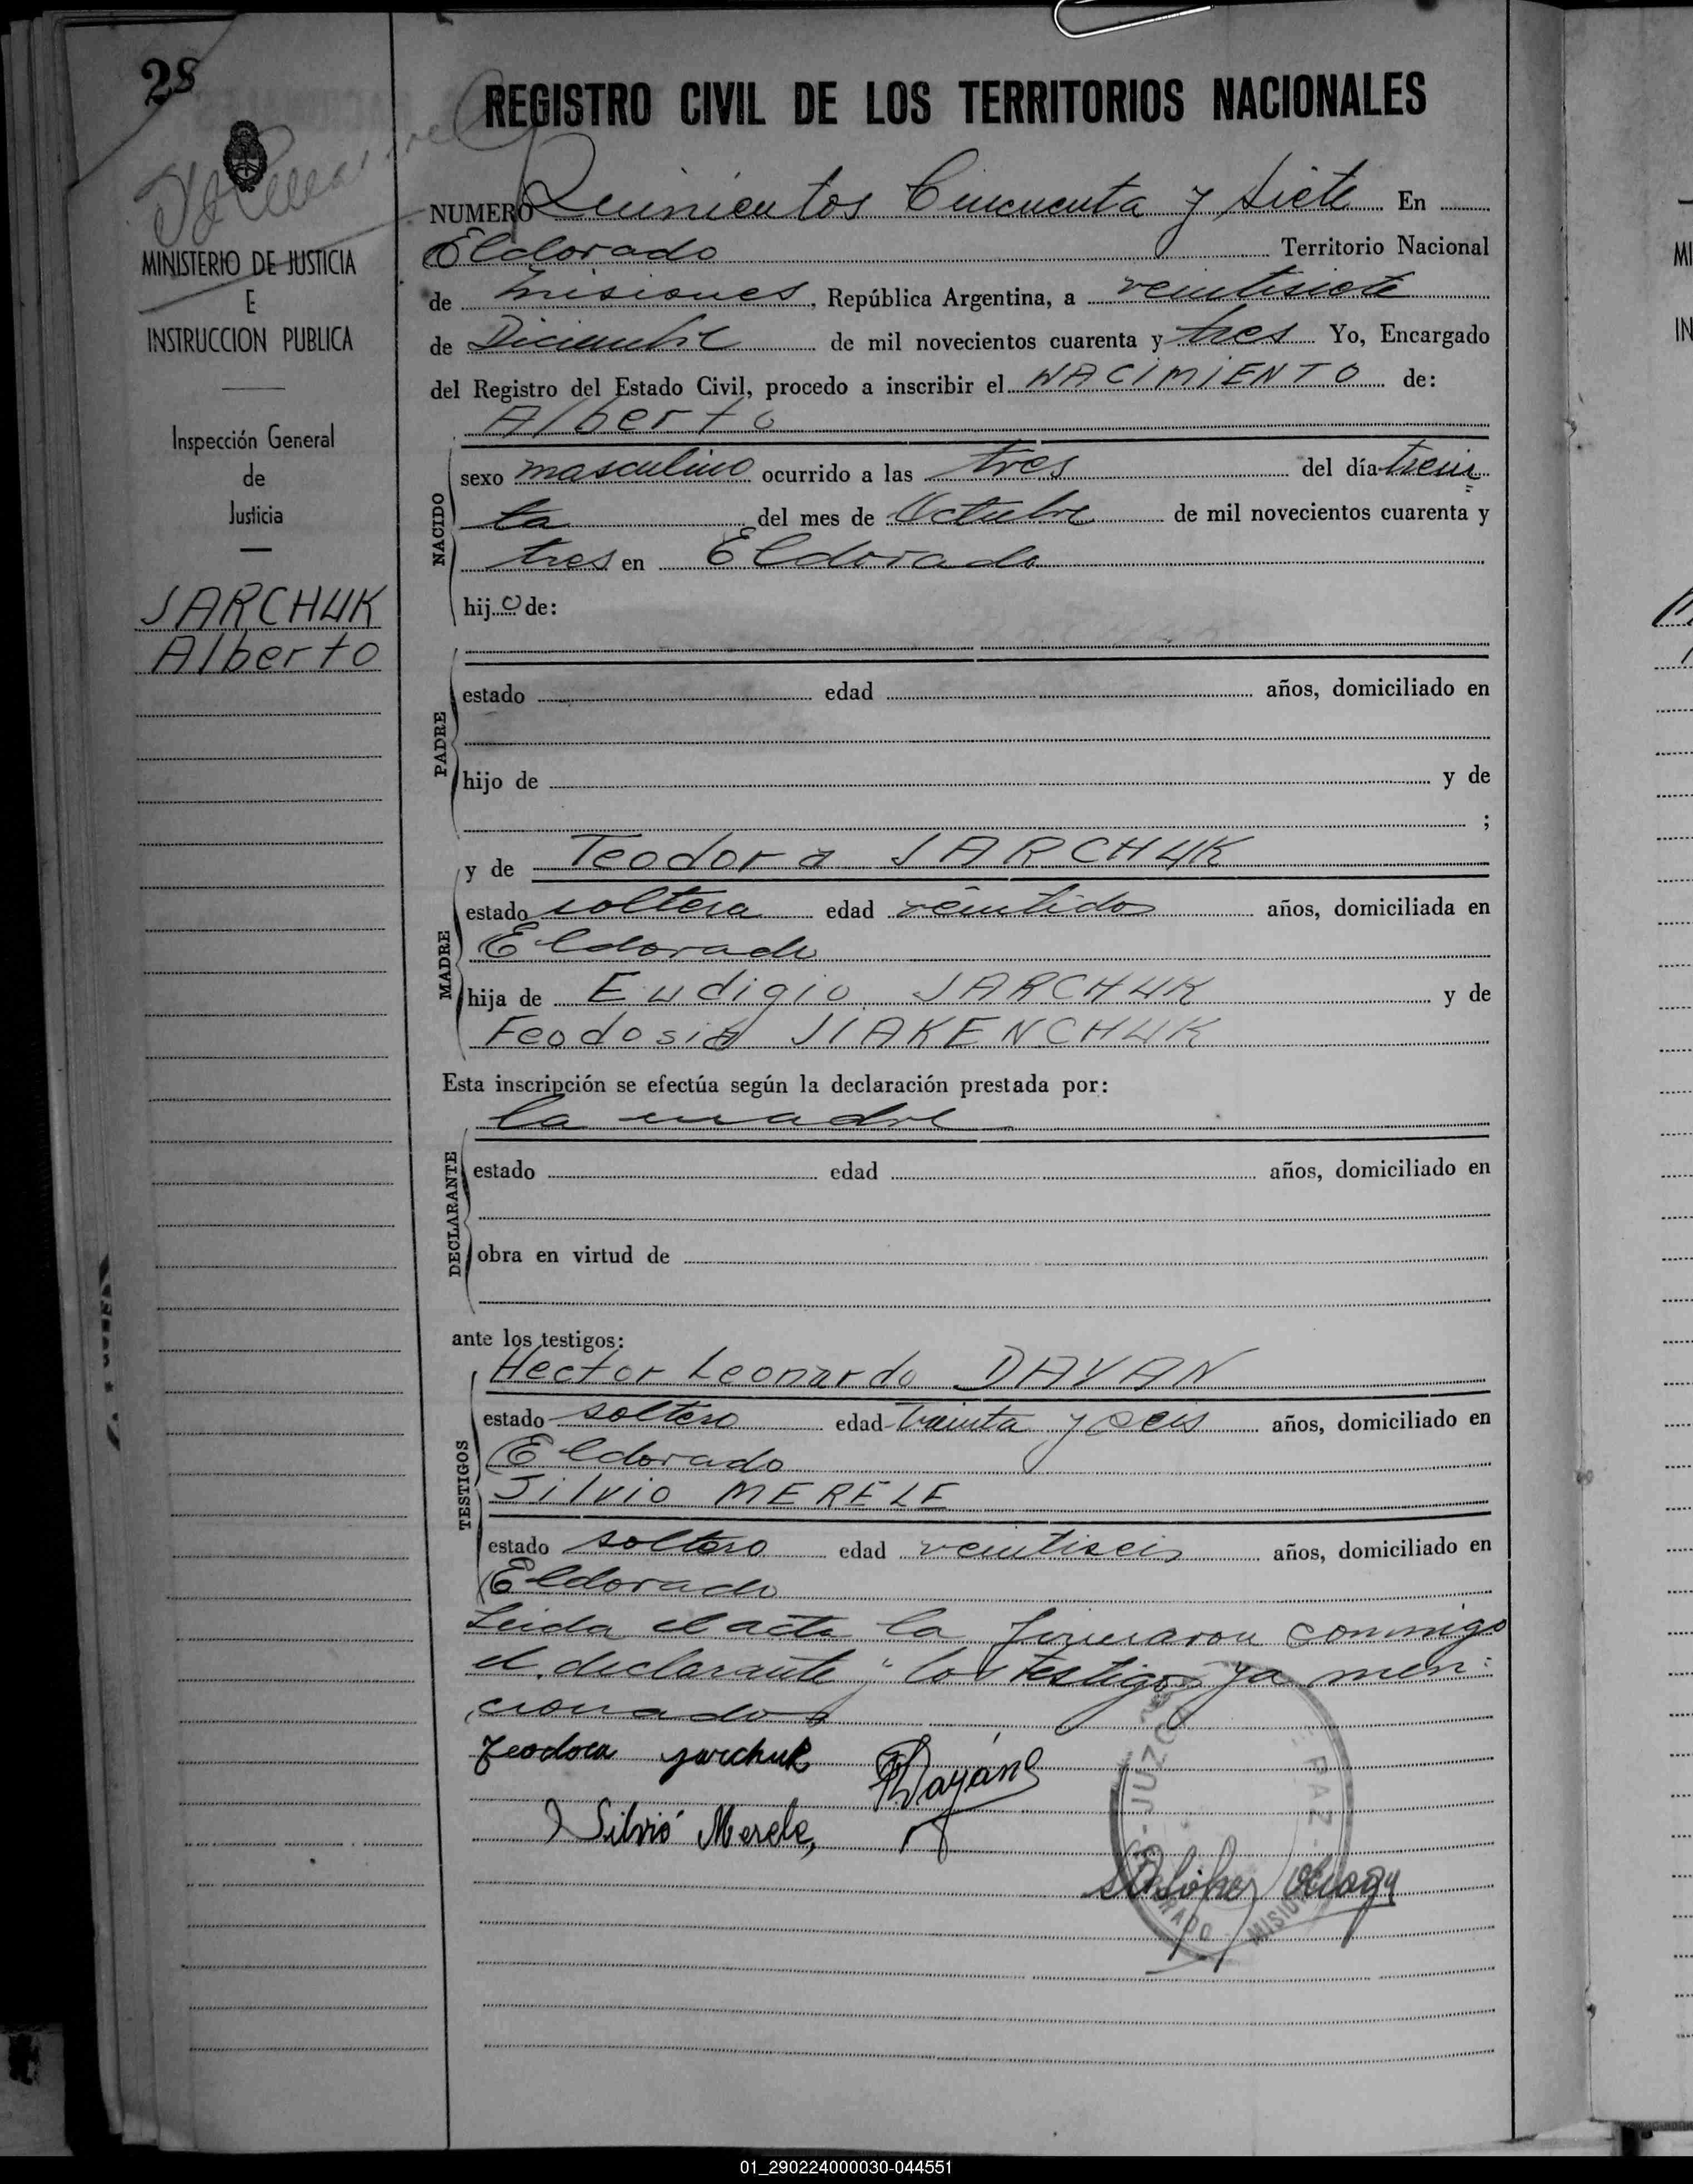 28
REGISTRO CIVIL DE LOS TERRITORIOS NACIONALES
MINISTERIO DE JUSTICIA
E
INSTRUCCION PUBLICA
Inspección General
de
Justicia
JARCHUK
Alberto
NUMERO Quinientos Cincuenta y siete En
Eldorado Territorio Nacional
de Misiones, República Argentina, a veintisiete
de Diciembre de mil novecientos cuarenta y tres Yo, Encargado
del Registro del Estado Civil, procedo a inscribir el NACIMIENTO de:
Alberto
NACIDO
sexo masculino ocurrido a las tres del día trein
ta del mes de Octubre de mil novecientos cuarenta y
tres en Eldorado
hijo de:
PADRE
estado edad años, domiciliado en
hijo de y de
;
y de Teodora JARCHUK
MADRE
estado soltera edad veintidos años, domiciliada en
Eldorado
hija de Eudigio JARCHUK y de
Feodosia JIAKENCHUK
Esta inscripción se efectúa según la declaración prestada por:
la madre
DECLARANTE
estado edad años, domiciliado en
obra en virtud de
ante los testigos:
Hector Leonardo DAYAN
TESTIGOS
estado soltero edad treinta y seis años, domiciliado en
Eldorado
Silvio MERELE
estado soltero edad veintiseis años, domiciliado en
Eldorado
Leida el acta la firmaron conmigo
el declarante y los testigos ya men
cionados
Teodora Jarchuk
Dayán
Silvio Merele
JUZGADO PAZ
ELDORADO MISIONES
01_290224000030-044551